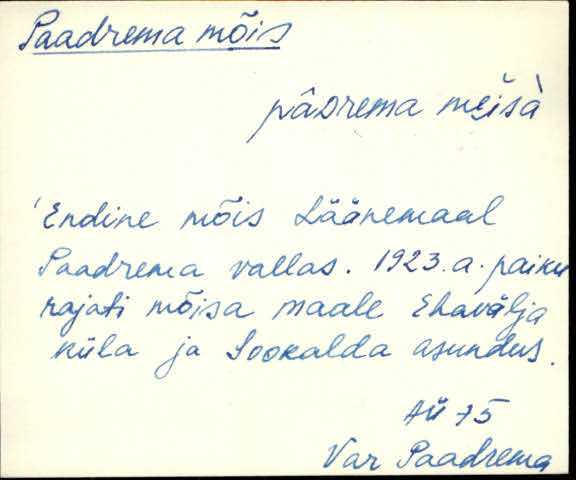 Paadrema mõis
pâᴅrema mẹiš̀à
Endine mõis Läänemaal
Paadrema vallas. 1923.a. paiku
rajati mõisa maale Ehavälja
küla ja Sookalda asundus.
AÜ 75
Var Paadrema